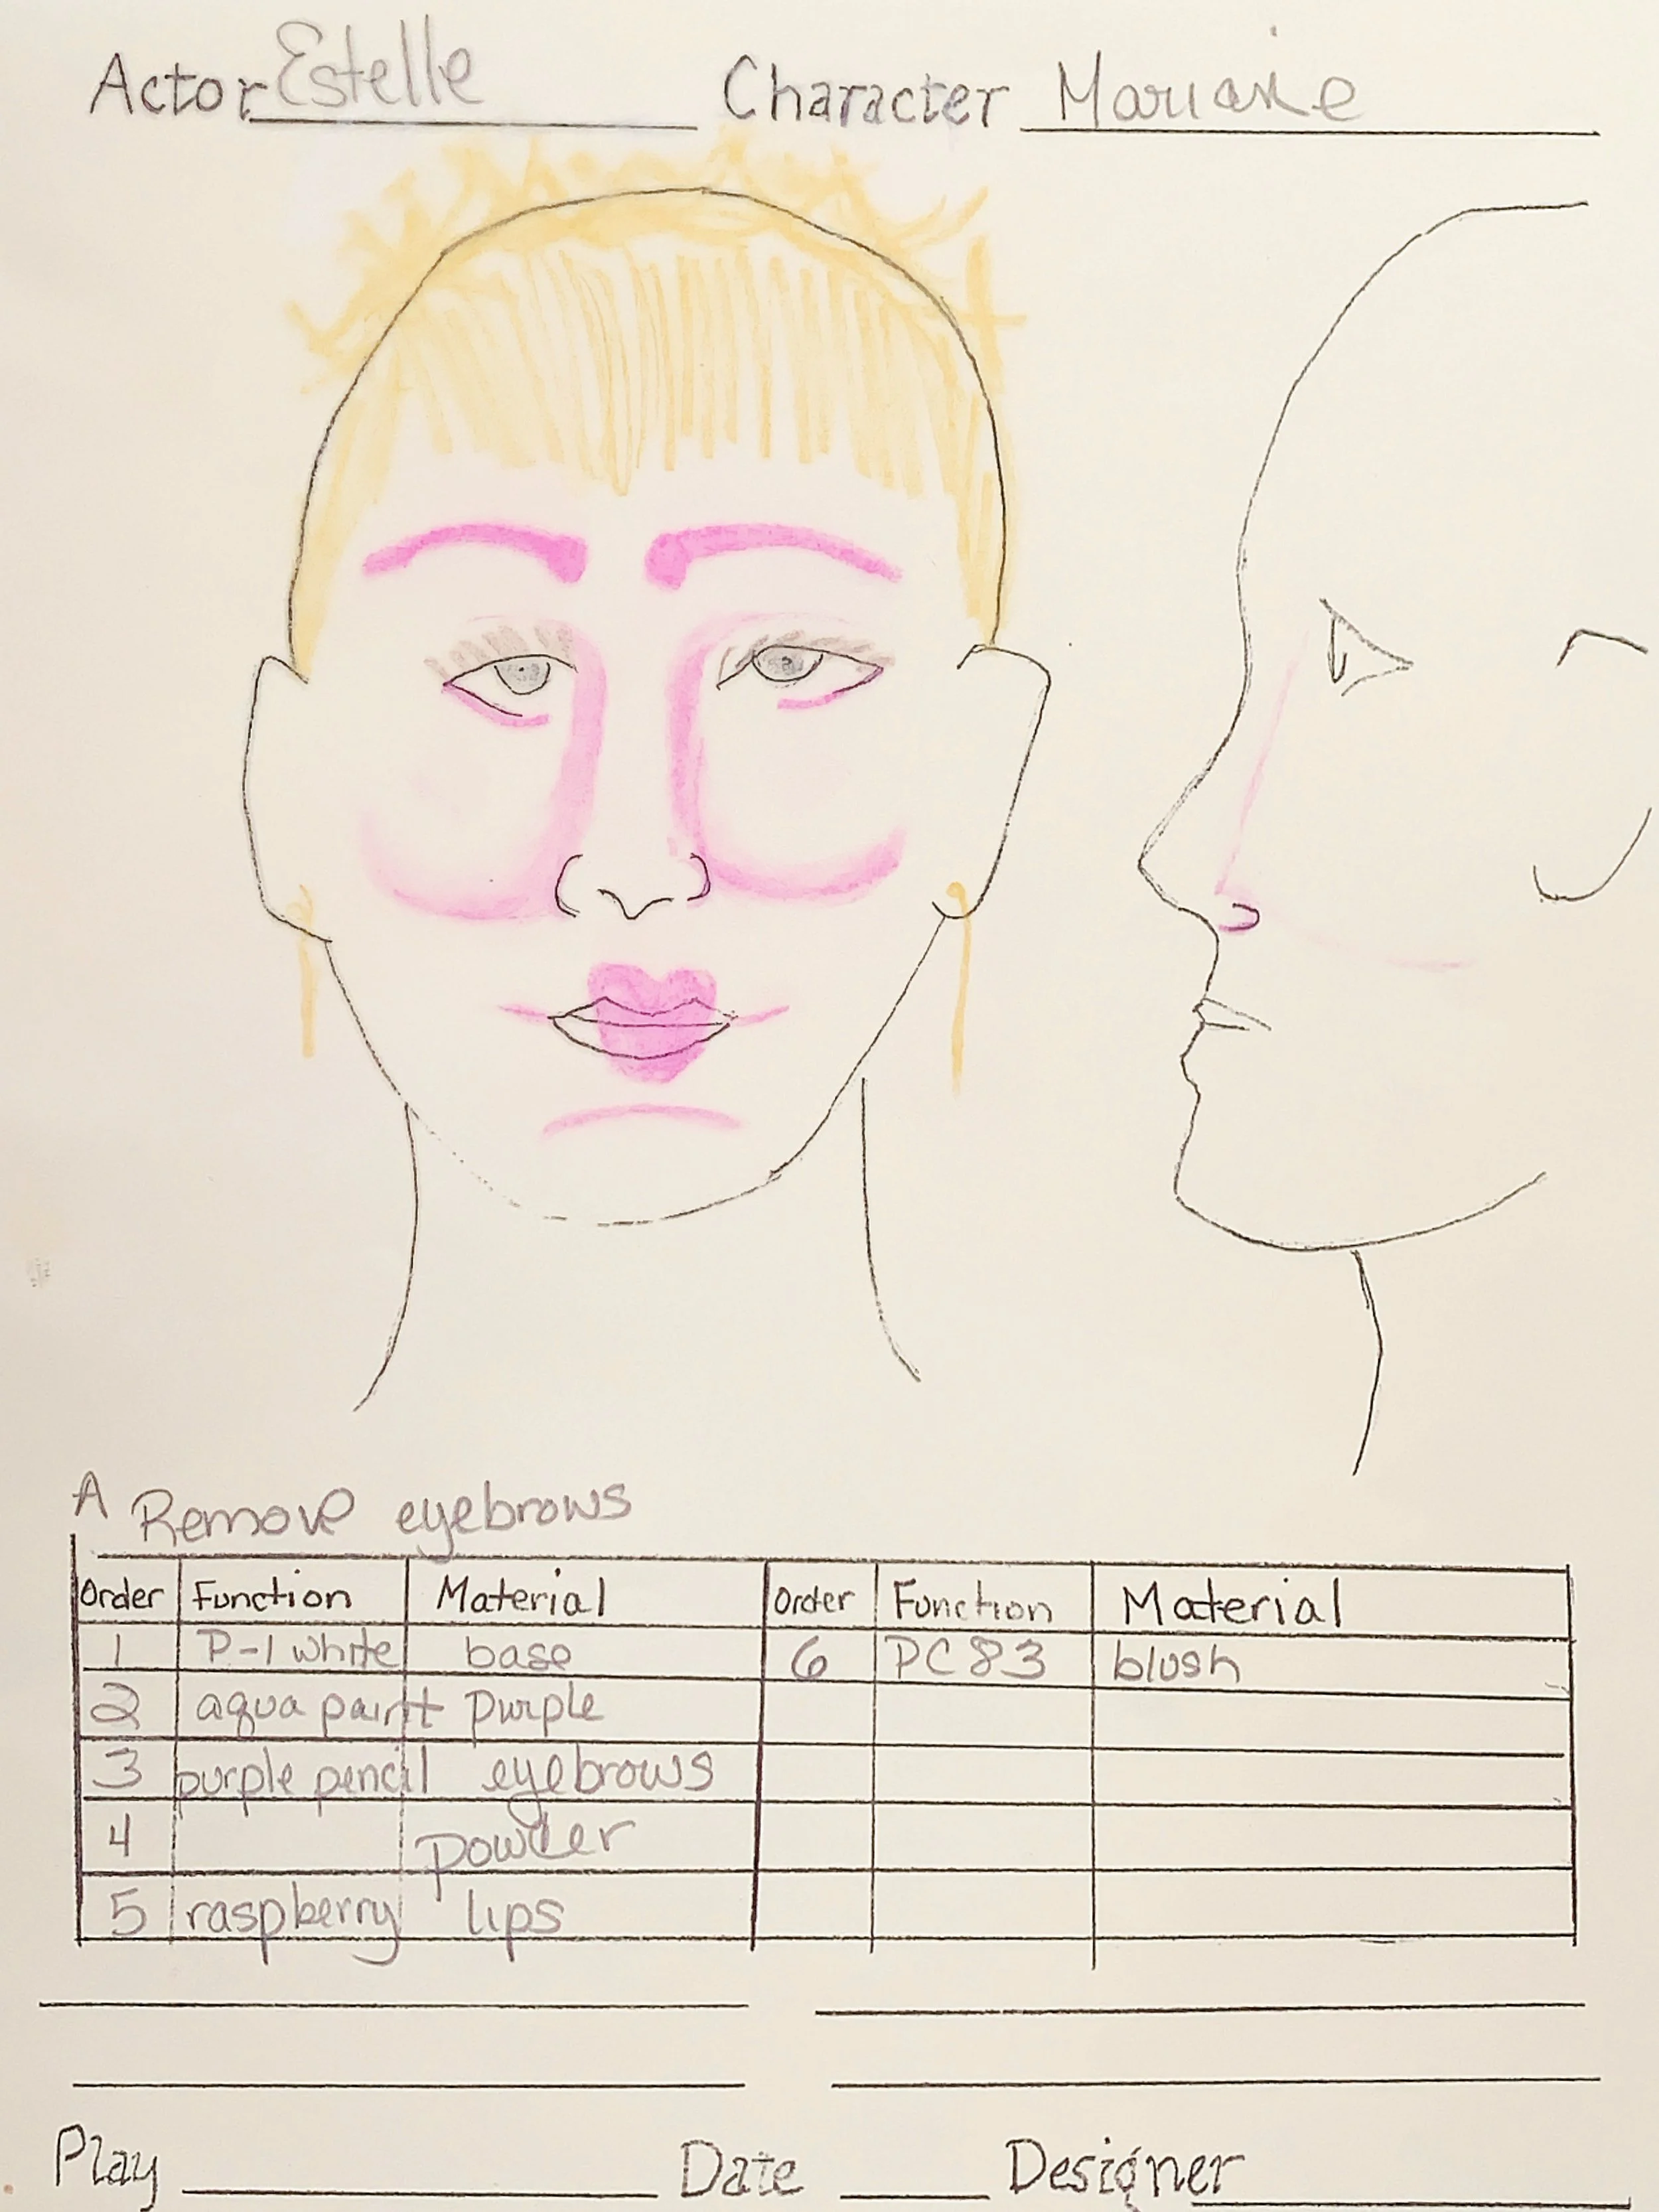 Actor Estelle Character Mariane
A Remove eyebrows
Order Function Material Order Function Material
1 P-1 white base 6 PC 83 blush
2 aqua paint purple
3 purple pencil eyebrows
4 powder
5 raspberry lips
Play Date Designer